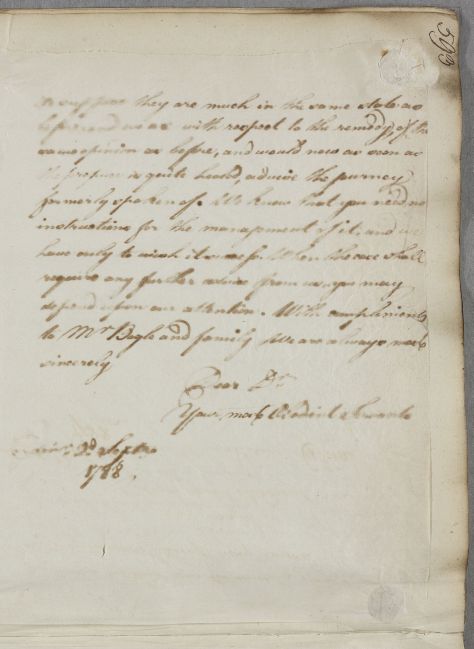 we suppose they are much in the same state as
before and we are with respect to the remedy, of the
same opinion as before, and would now as soon as
the is quite heald, advise the journey
formerly spoken of. We know that you need no
instructions for the management of it, and we
have only to wish it When the case shall
require any further advice from us, you may
depend upon our attention. With compliments
to Mr Bogle and family We are always most
sincerely
Dear Dr
Your most Obedient Servants
Edinr. 2d Septr
1788.
593